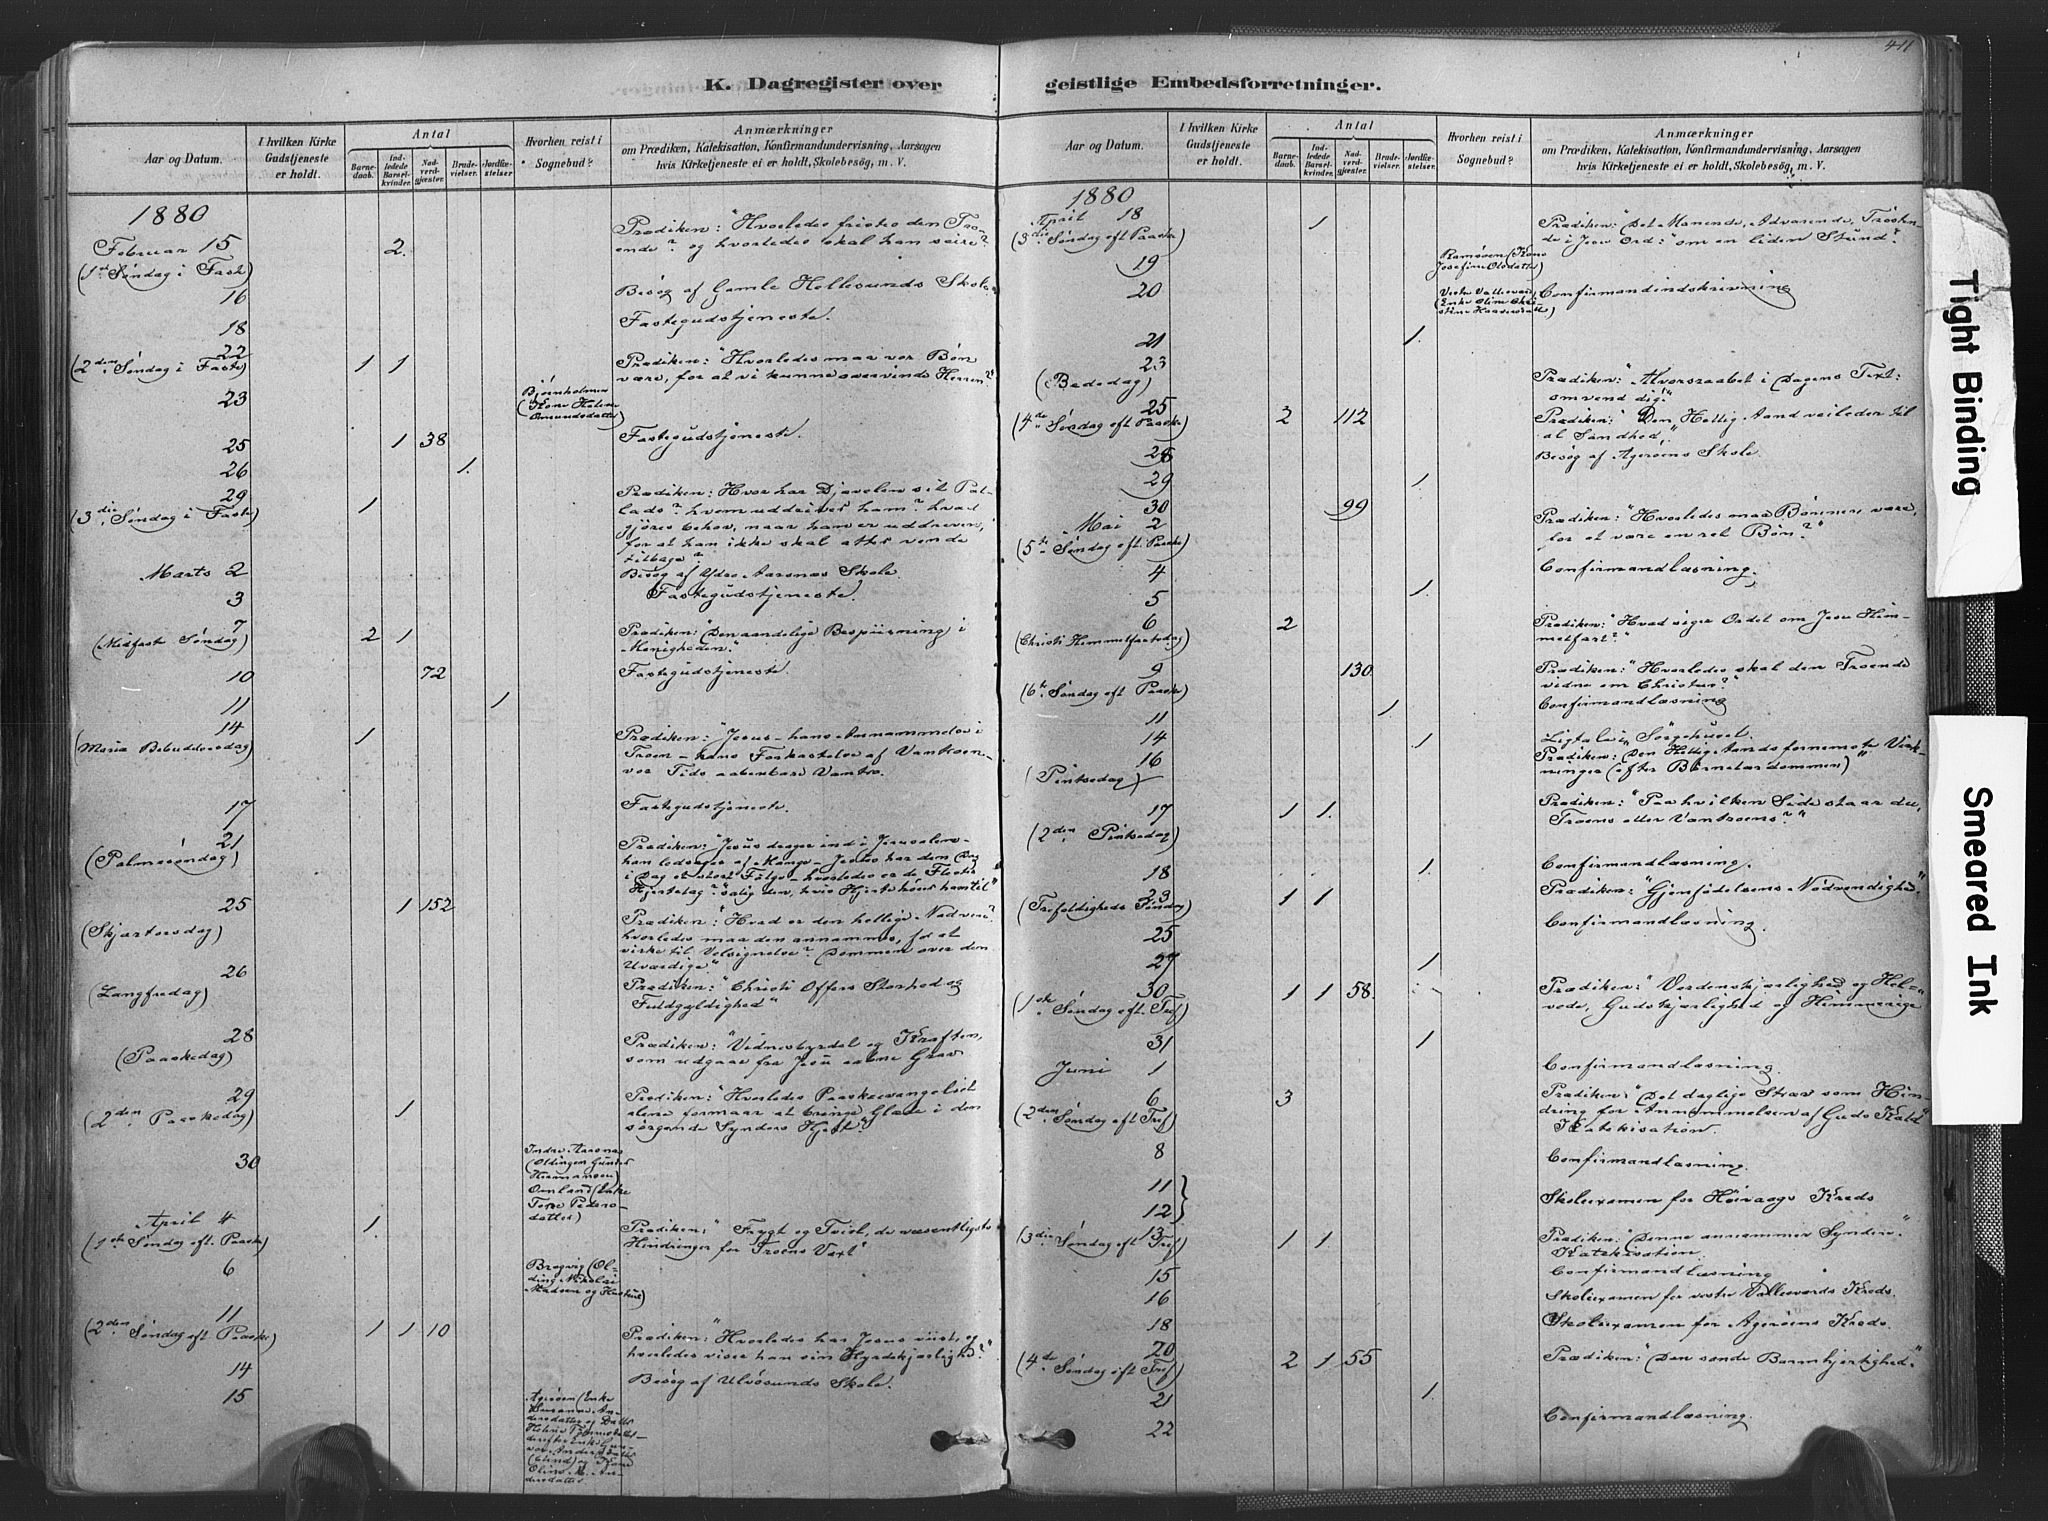 411
K. Dagregister over
geistlige Embedsforretninger.
Aar og Datum.
I hvilken Kirke
Gudstjeneste
er holdt.
Antal
Barne-
daab.
Ind-
ledede
Barsel-
kvinder.
Nad-
verd-
gjæster.
Brude-
vielser.
Jordfæ-
stelser
Hvorhen reist i
Sognebud?
Anmærkninger
om Prædiken, Katekisation, Konfirmandundervisning, Aarsagen
hvis Kirketjeneste ei er holdt, Skolebesøg, m. V.
1880
Februar 15
(1ste Søndag i Faste)
2.
Prædiken: "Hvorledes fristes den Tro-
ende? og hvorledes skal han seire?"
16
Besøg af Gamle Hellesunds Skole.
18
Fastegudstjeneste.
22
(2den Søndag i Faste)
1 1
Prædiken: "Hvorledes maa vor Bøn
være, for at vi kunne overvinde Herren?"
23
Bjørnholmen
(Kone Helene
Omundsdatter)
25
1 38
Fastegudstjeneste.
26
1.
29
(3die Søndag i Faste)
1
Prædiken: Hvor har Djævelen sit Pal-
lads? hvem uddriver ham? hvad
gjøres behov, naar han er uddreven,
for at han ikke skal atter vende
tilbage?
Marts 2
Besøg af Ydre Aarsnæs Skole.
3
Fastegudstjeneste.
7
(Midfaste Søndag)
2 1
Prædiken: (Den aandelige Bespiisning i
Menigheden."
10
72
Fastegudstjeneste.
11
1
14
(Maria Bebudelsesdag)
1
Prædiken: "Jesus - hans Annammelse i
Troen - hans Forkastelse af Vantroen -
vor Tids aabenbare Vantro.
17
Fastegudstjeneste.
21
(Palmesøndag)
Prædiken: "Jesus drager ind i Jerusalem -
han ledsages af Mange - Jesus har den
i Dag et stort Følge - hvorledes er de Flestes
Hjertelag? salig den, hvis Hjerte hører ham til"
25
(Skjærtorsdag)
1 152
Prædiken: "Hvad er den hellige Nadvere?
hvorledes maa den annammes, for at
virke til Velsignelse? Dommen over den
Uværdige"
26
(Langfredag)
Prædiken: "Christi Offers Storhed og
Fuldgyldighed"
28
(Paaskedag)
Prædiken: "Vidnesbyrdet og Kraften,
som udgaar fra Jesu aabne Grav.
29
(2den Paaskedag)
1
Prædiken: "Hvorledes Paaskeevangeliet
alene formaar at bringe Glæde i den
sørgende Synders Hjerte"
30
Indre Aarsnæs
(Oldingen Gunder
Hermansen)
Omland (Enke
Terje Peders-
datter)
April 4
(1ste Søndag eft. Paaske)
1.
Prædiken: "Frygt og Tvivl, de væsentligste
Hindringer for Troens Væxt"
6
Brægvig (Ol-
ding Nikolai
Madsen og Hustru)
11
(2den Søndag eft Paaske)
1 1 10
Prædiken: "Hvorledes har Jesus viist, og
hvorledes viser han sin Hyrdekjærlighed?"
14
Besøg af Ulvøsunds Skole.
15
Agerøen (Enke
Susanne An-
dersdatter og Datter
Helene
Enke Gun-
vor Andersdatter
(blind) og Kone
Oline M. An-
dersdatter
Aar og Datum.
I hvilken Kirke
Gudstjeneste
er holdt.
Antal
Barne-
daab.
Ind-
ledede
Barsel-
kvinder.
Nad-
verd-
gjæster.
Brude-
vielser.
Jordfæ-
stelser
Hvorhen reist i
Sognebud?
Anmærkninger
om Prædiken, Katekisation, Konfirmandundervisning, Aarsagen
hvis Kirketjeneste ei er holdt, Skolebesøg, m. V.
1880
April 18
(3die Søndag eft Paaske)
1
Prædiken: "Det Manende, Advarende, Trøsten-
de i Jesu Ord: "om en liden Stund".
19
Ramsøen (Kone
Josefine Olsdatter)
20
Vestre Vallesværd
(Enke Oline Chri-
stine Haagensdatt)
Confirmandindskrivning
21
1.
23
(Bededag)
Prædiken: "Alvorsraabet i Dagens Text:
omvend dig."
25
(4de Søndag eft Paaske)
2 112
Prædiken: "Den Hellig Aand veileder til
al Sandhed."
28
Besøg af Agerøens Skole.
29
1.
30
99
Mai 2
(5te Søndag eft. Paaske)
Prædiken: "Hvorledes maa Bønnen være,
for at være en ret Bøn?"
4
Confirmandlæsning.
5
1
6
(Christi Himmelfartsdag)
2
Prædiken: "Hvad siger Ordet om Jesu Him-
melfart?"
9
(6te Søndag eft Paaske)
130
Prædiken: "Hvorledes skal den Troende
vidne om Christus?"
11
1
Confirmandlæsning
14
1
Ligtale i Sørgehuset.
16
(Pintsedag)
Prædiken: (Den Hellig Aands fornemste Virk-
ninger (efter Børnelærdommen)"
17
(2den Pintsedag)
1 1.
Prædiken: "Paa hvilken Side staar du,
Troens eller Vantroens?"
18
1
Confirmandlæsning.
23
(Trefoldigheds Søndag)
1 1
Prædiken: "Gjenfødelsens Nødvendighed."
25
Confirmandlæsning.
27
1
30
(1ste Søndag eft. Tref)
1 1 58
Prædiken: "Verdenskjærlighed og Hel-
vede, Gudskjærlighed og Himmerige"
31
1
Juni 1
Confirmandlæsning.
6
(2den Søndag eft Tref)
3
Prædiken: "Det daglige Stræv som Hin-
dring for Annammelsen af Guds Kald"
Katekisation.
8
Confirmandlæsning.
11
12
Skoleexamen for Høivaags Kreds
13
(3die Søndag eft Tref)
1 1.
Prædiken: (Denne annammer Syndere"
Katekisation.
15
Confirmandlæsning
16
Skoleexamen for vestre Vallesværds Kreds.
18
Skoleexamen for Agerøens Kreds.
20
(4de Søndag eft Tref)
2 1 55
Prædiken: "Den sande Barmhjertighed."
21
1
22
Confirmandlæsning.
Tight Binding
Smeared Ink